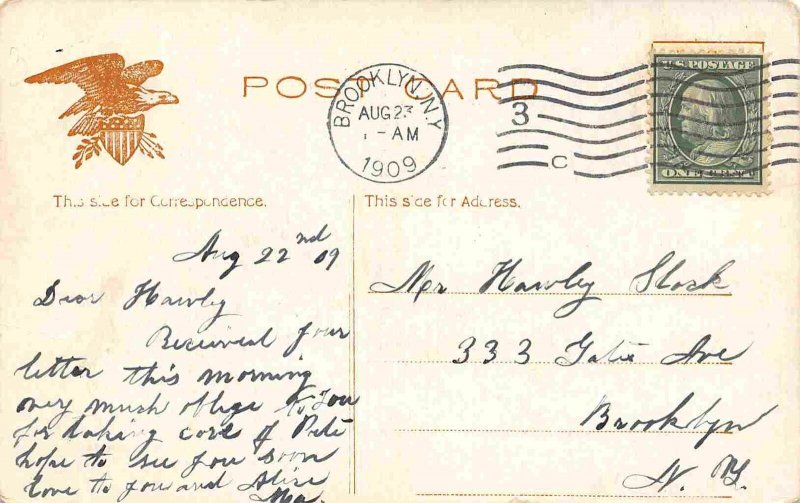 POST CARD
BROOKLYN, N.Y.
AUG 23
1 - AM
1909
3
C
U.S. POSTAGE
ONE CENT
This side for Correspondence.
This side for Address.
Aug 22nd 09
Dear Hawly
Received your
letter this morning
very much oblige to You
for taking care of Pete
hope to see you soon
love to you and Alice
Ma.
Mr Hawly Slock
333 Gates Ave
Brooklyn
N. Y.